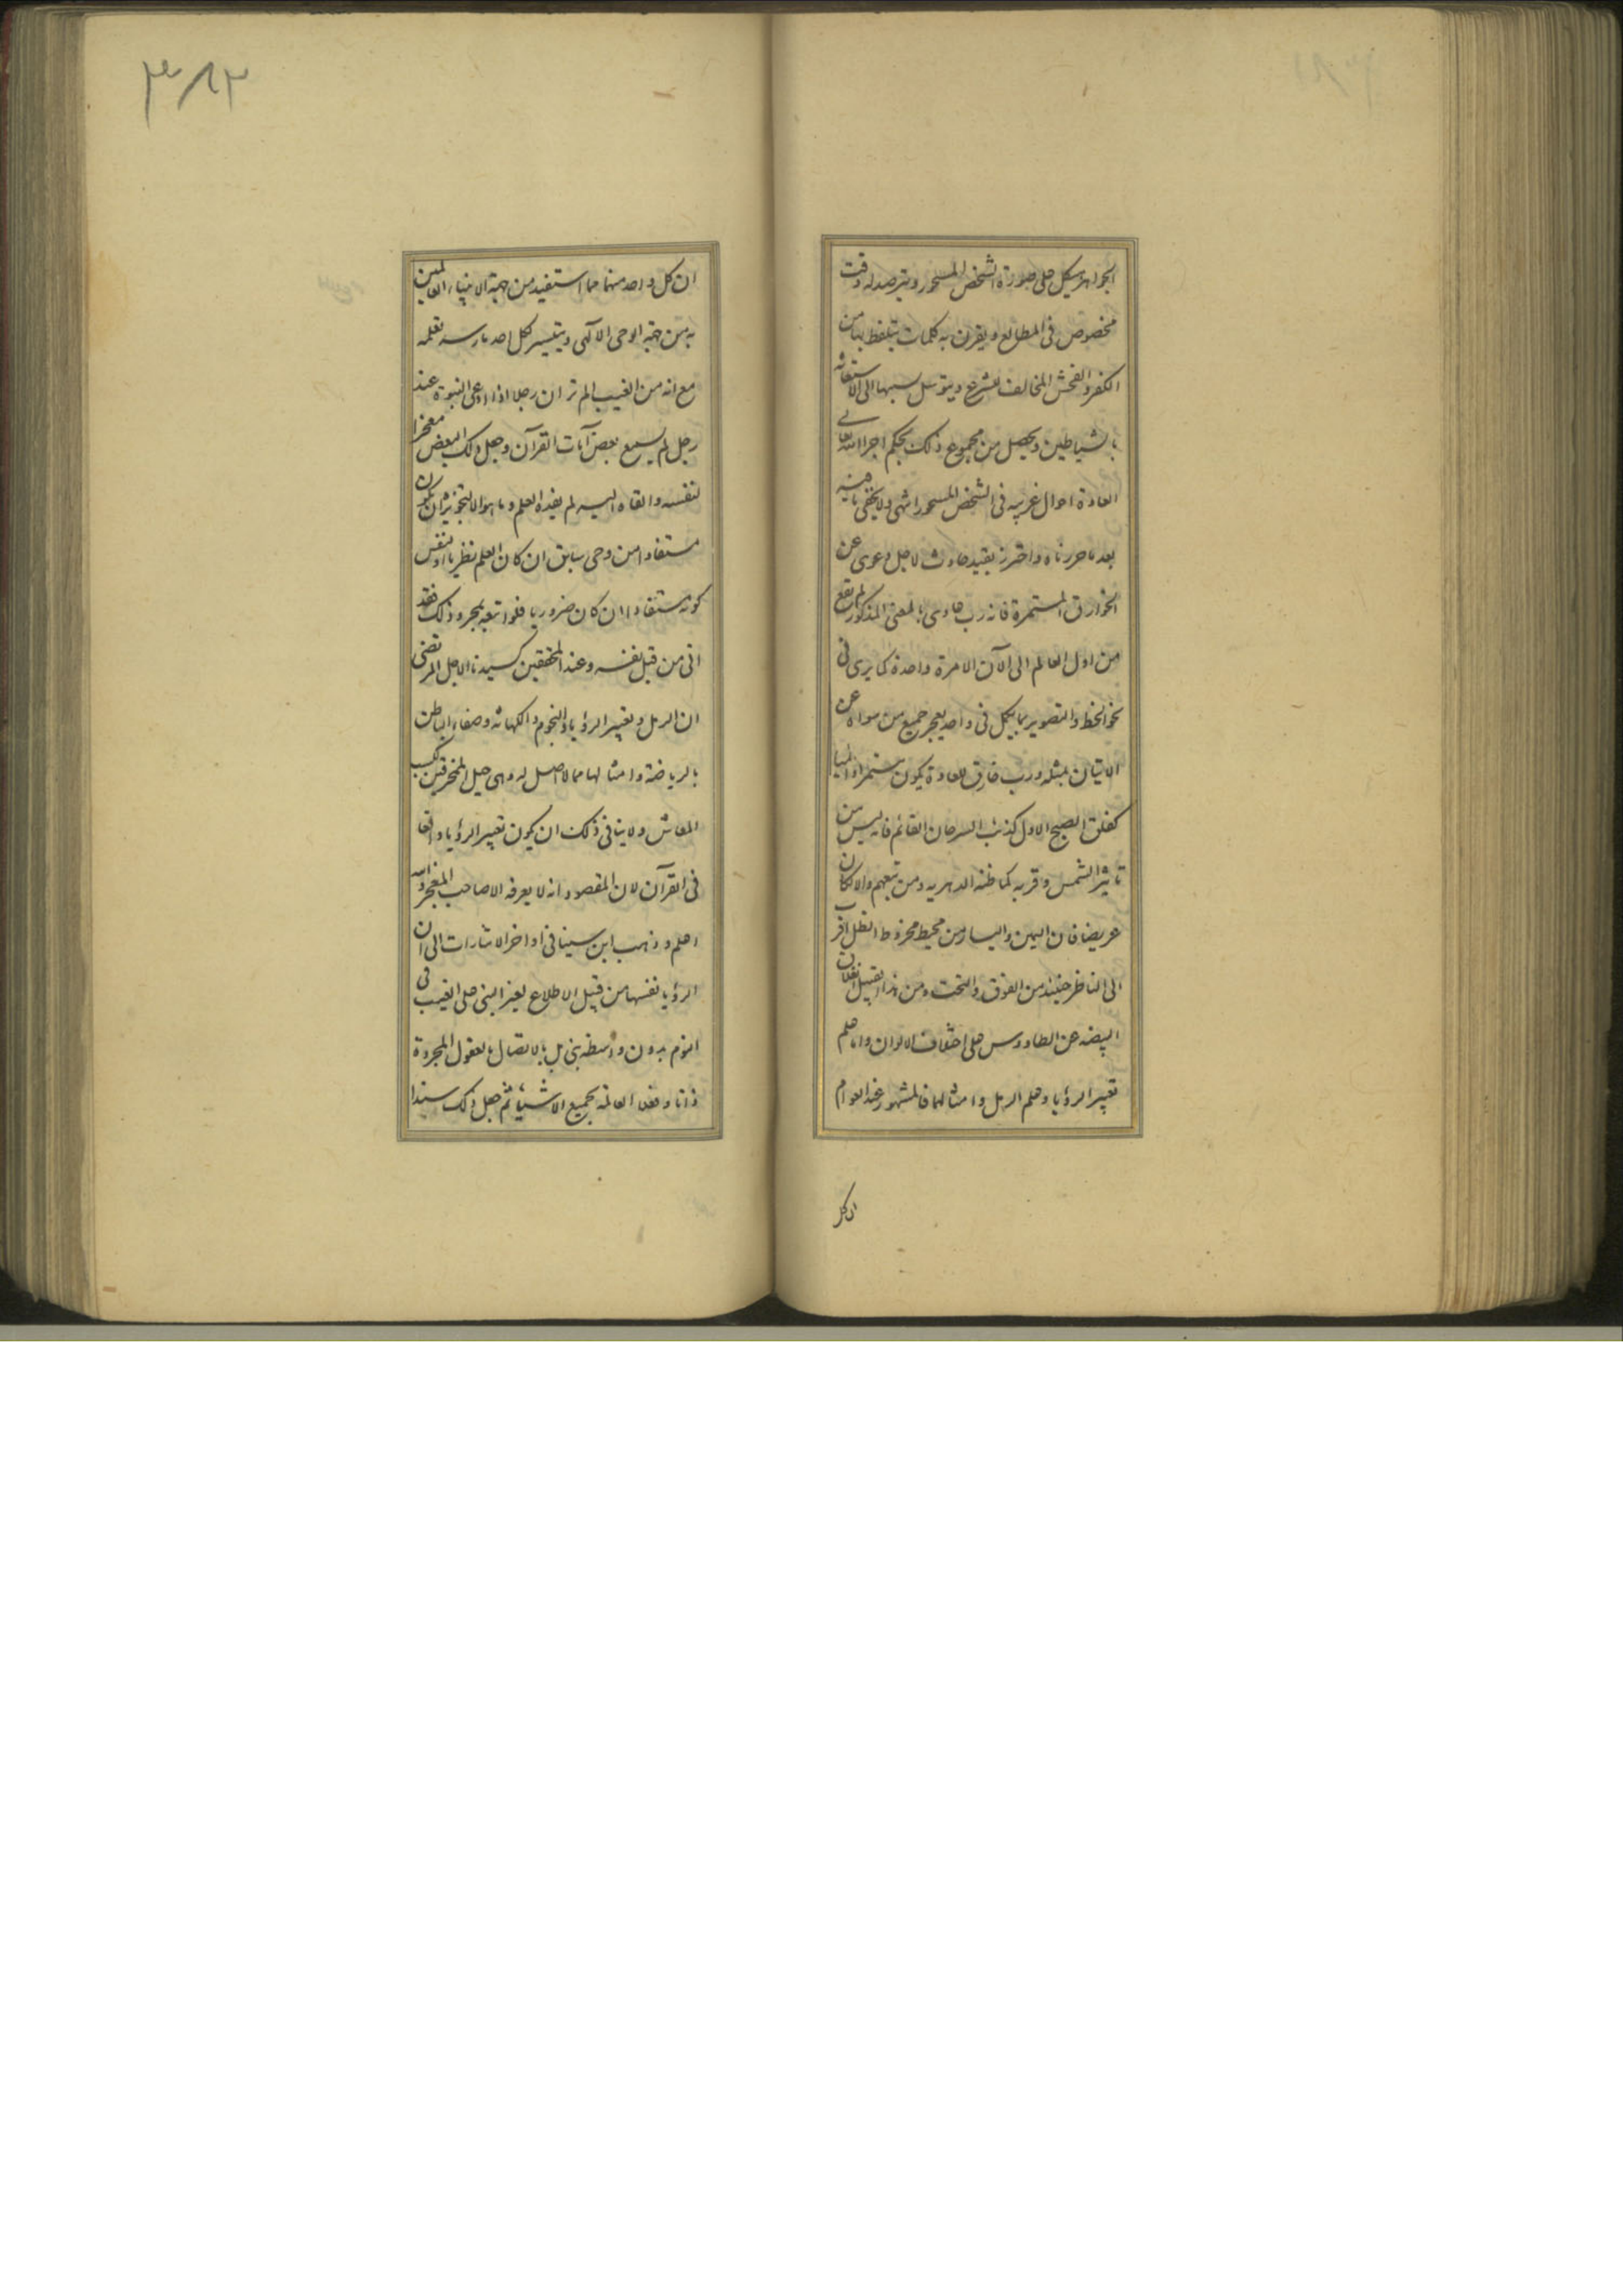 الجواهر هيكل على صورة الشخص المسحور ويترصد له وقت
مخصوص فى المطالع ويقرن به كلمات يتلفظ بها من
الكفر والفحش المخالف للشرع ويتوسل بسببها الى الاستغاثة
بالشياطين ويحصل من مجموع ذلك بحكم اجراء الله تعالى
العادة احوال غريبه فى الشخص المسحور انتهى ولا يخفى ما فيه
بعد ما حررناه واحترز بقيد حادث لاجل دعوى عن
الخوارق المستمرة فانه رب حادث بالمعنى المذكور لم يقع
من اول العالم الى الآن الا مرة واحدة كما يرى فى
نحو الخط والتصوير مما يكمل فى واحد يعجز جميع من سواه عن
الاتيان بمثله ورب خارق للعادة يكون مستمرا
كفلق الصبح الاول كذنب السرحان القائم فانه ليس من
تاثير الشمس وقربه كما ظنه الدهريه ومن تبعهم والا لكان
عريضا فان اليمين واليسار من محيط مخروط الظل اقرب
الى الناظر حينئذ من الفوق والتحت ومن هذا القبيل انفلاق
البيضه عن الطاووس على اختلاف الالوان واما علم
تعبير الرؤيا وعلم الرمل وامثالهما فالمشهور عند العوام
ان كل
٣٨٢
ان كل واحد منهما مما استفيد من جهة الانبياء العالمين
به من جهة الوحى الالهى ويتيسر لكل احد مارسه تعلمه
مع انه من الغيب الم تر ان رجلا اذا ادعى النبوة عند
رجل لم يسمع بعض آيات القرآن وجعل ذلك البعض معجزا
لنفسه والقاه اليه لم يفده العلم وما هو الا لتجويز ان يكون
مستفادا من وحى سابق ان كان العلم نظريا او لنفس
كونه مستفادا ان كان ضروريا فلو اتبعه بمجرد ذلك فقد
اتى من قبل نفسه وعند المحققين كسيدنا الاجل المرتضى
ان الرمل وتعبير الرؤيا والنجوم والكهانه وصفاء الباطن
بالرياضة وامثالها مما لا اصل له وهى حيل المخرقين لكسب
المعاش ولا ينافى ذلك ان يكون تعبير الرؤيا واقعا
فى القرآن لان المقصود انه لا يعرفه الا صاحب المعجز والله
اعلم وذهب ابن سينا فى اواخر الاشارات الى ان
الرؤيا نفسها من قبيل الاطلاع لغير النبى على الغيب فى
النوم بدون واسطه نبى بل بالاتصال بالعقول المجردة
ذاتا وفعلا العالمة بجميع الاشياء ثم جعل ذلك سندا